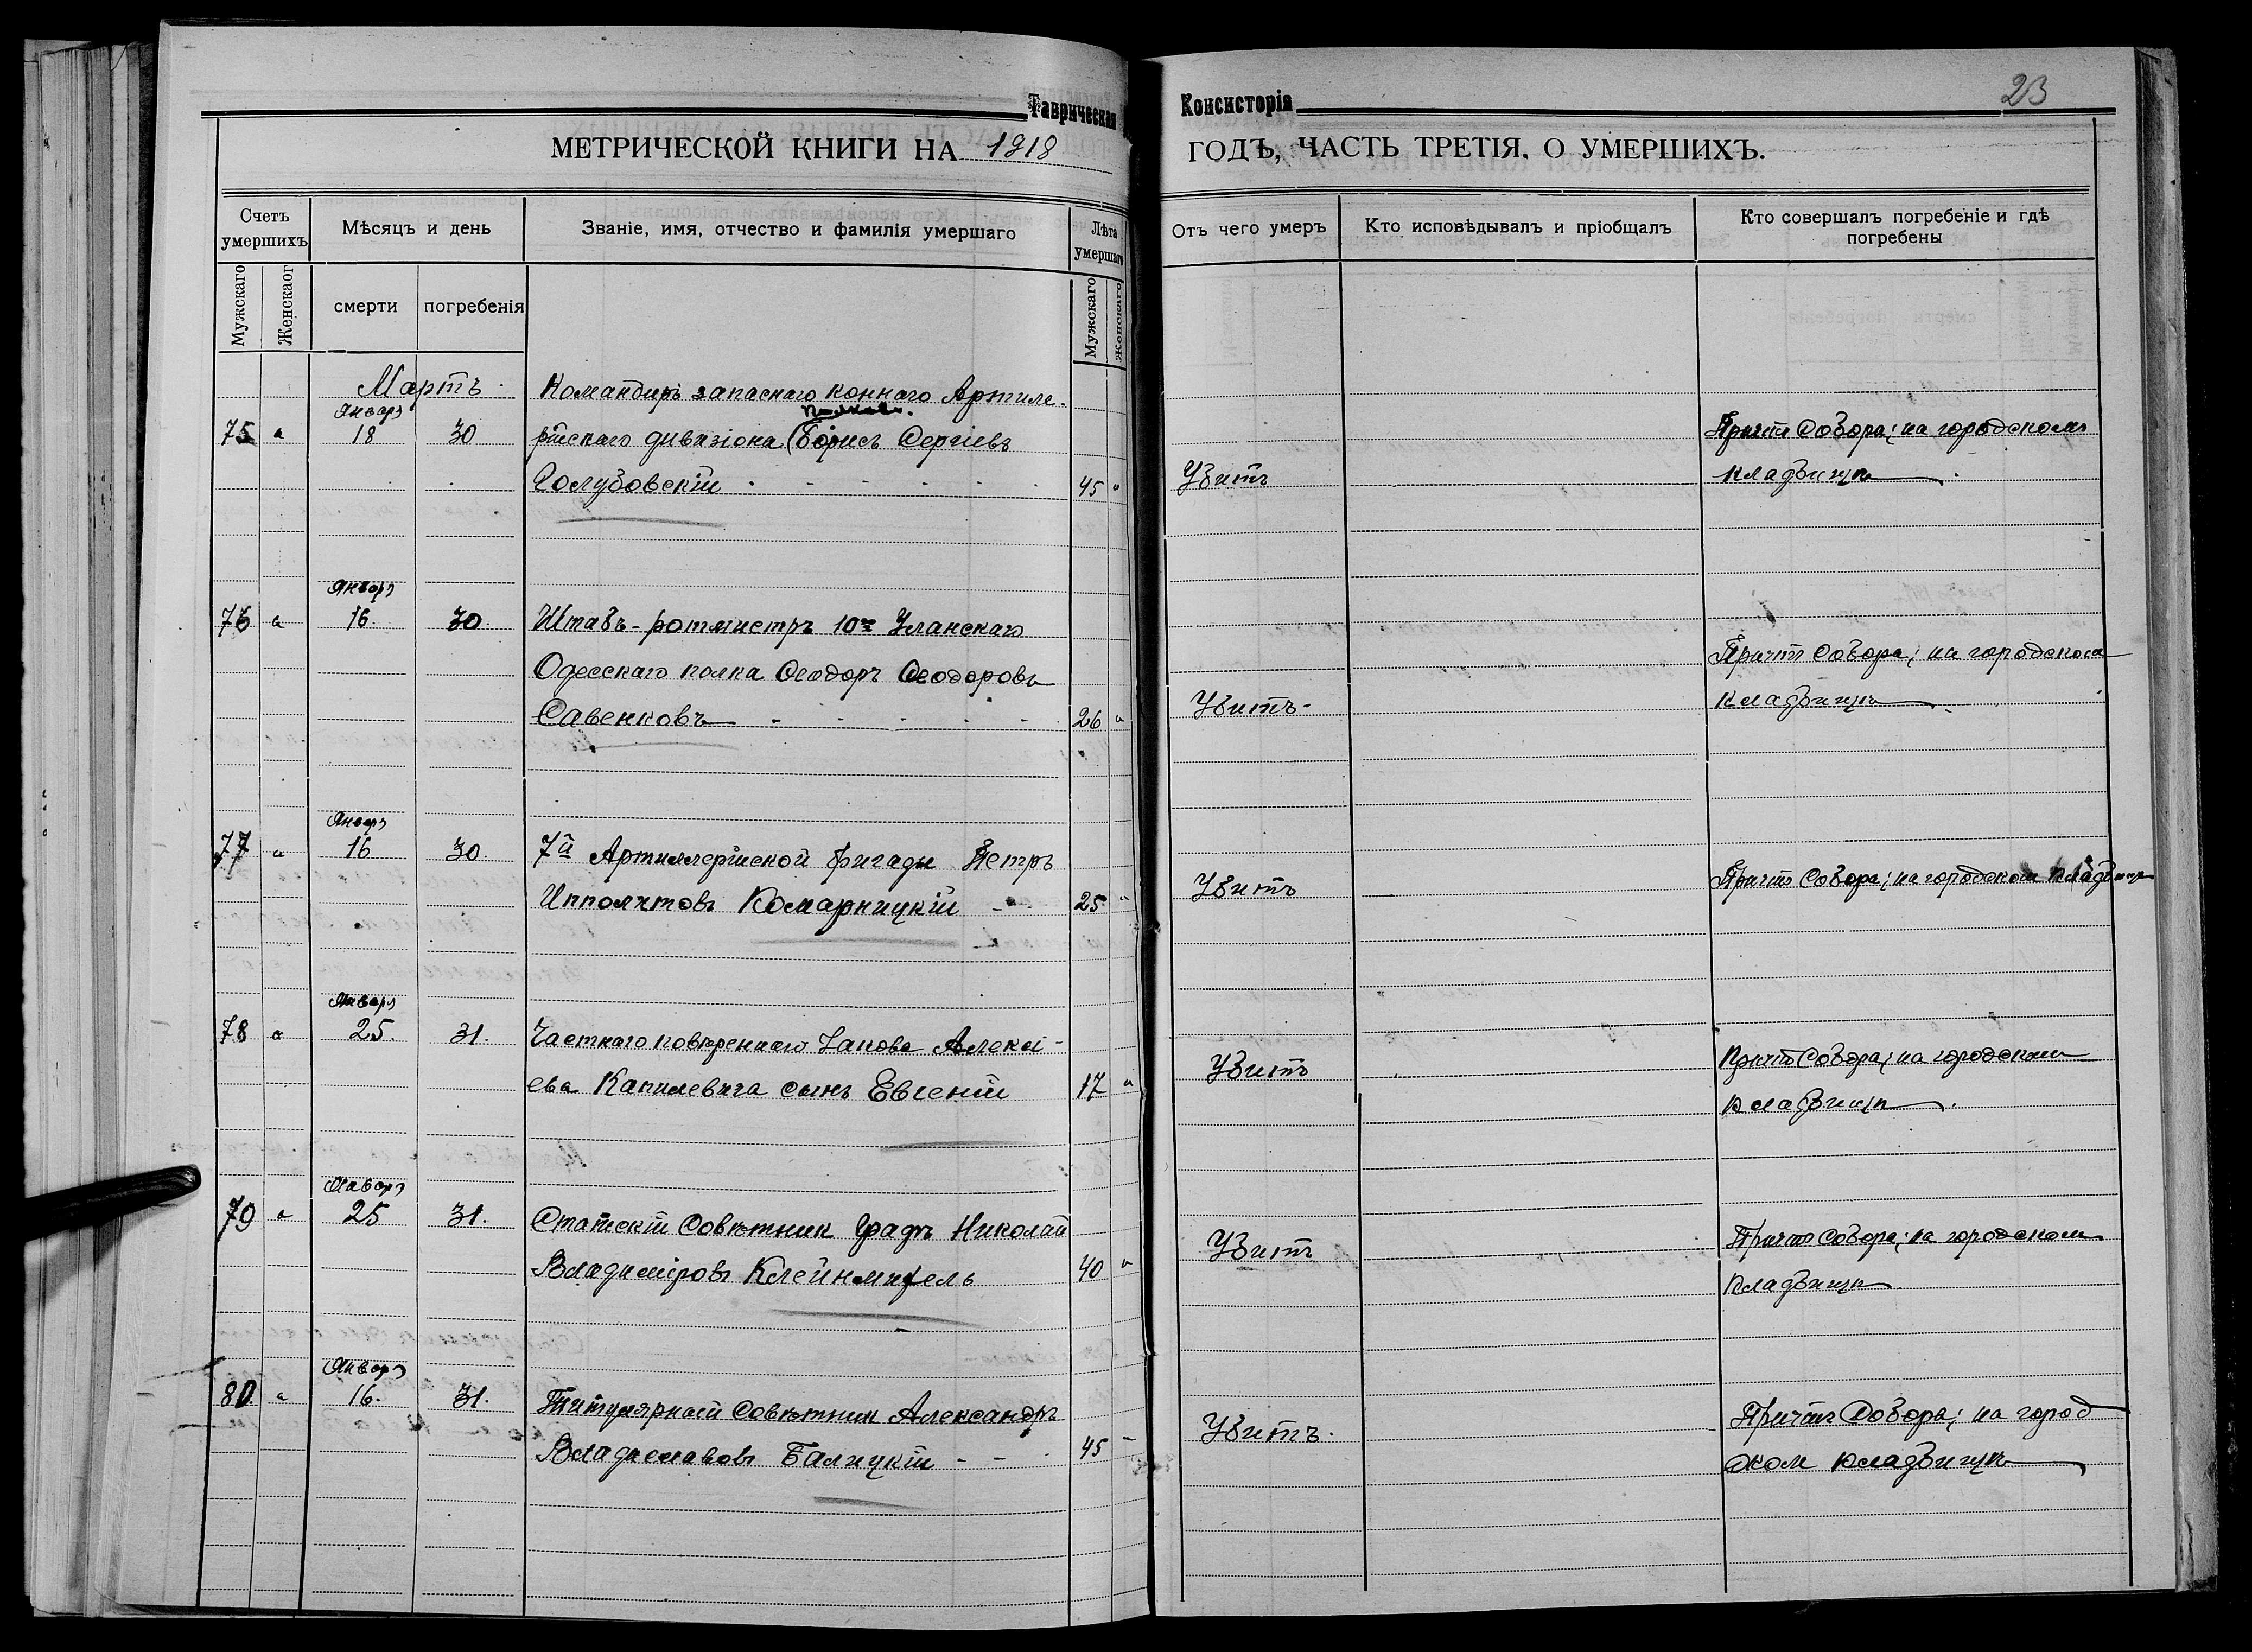 Таврическая Консисторія
23
МЕТРИЧЕСКОЙ КНИГИ НА 1918 ГОДЪ, ЧАСТЬ ТРЕТІЯ, О УМЕРШИХЪ.
Счетъ умершихъ
Мѣсяцъ и день
Званіе, имя, отчество и фамилія умершаго
Лѣта умершаго
Отъ чего умеръ
Кто исповѣдывалъ и пріобщалъ
Кто совершалъ погребеніе и гдѣ
погребены
Мужскаго
Женскаог
смерти
погребенія
Мужскаго
Женскаго
Мартъ
Командиръ запаснаго коннаго Артиле-
Января
полковн.
75 " 18 30 рійскаго дивизіона (Борисъ Сергіевъ
Причтъ Собора; на городскомъ
Голубовскій 45 " Убитъ
кладбищѣ
Января
76 " 16. 30. Штабъ-ротмистръ 10го Уланскаго
Одесскаго полка Ѳеодоръ Ѳеодоровъ
Причтъ Собора; на городском
Савенковъ 26 " Убитъ-
кладбищѣ
Января
77 " 16 30. 7й Артиллерійской бригады Петръ
Ипполитовъ Комарницкій 25 " Убитъ
Причтъ Собора; на городском кладбищѣ
Января
78 " 25. 31. Частнаго повѣреннаго Іакова Алексі-
ева Капилевича сынъ Евгеній 17 " Убитъ
Причтъ Собора; на городском
кладбищѣ
Января
79 " 25 31. Статскій Совѣтник Графъ Николай
Владиміровъ Клейнмихель 40 " Убитъ
Причтъ Собора; на городском
кладбищѣ
Января
80. " 16. 31. Титулярный Совѣтник Александръ
Владиславовъ Балицкій - - 45 - Убитъ.
Причтъ Собора; на город
ском кладбищѣ